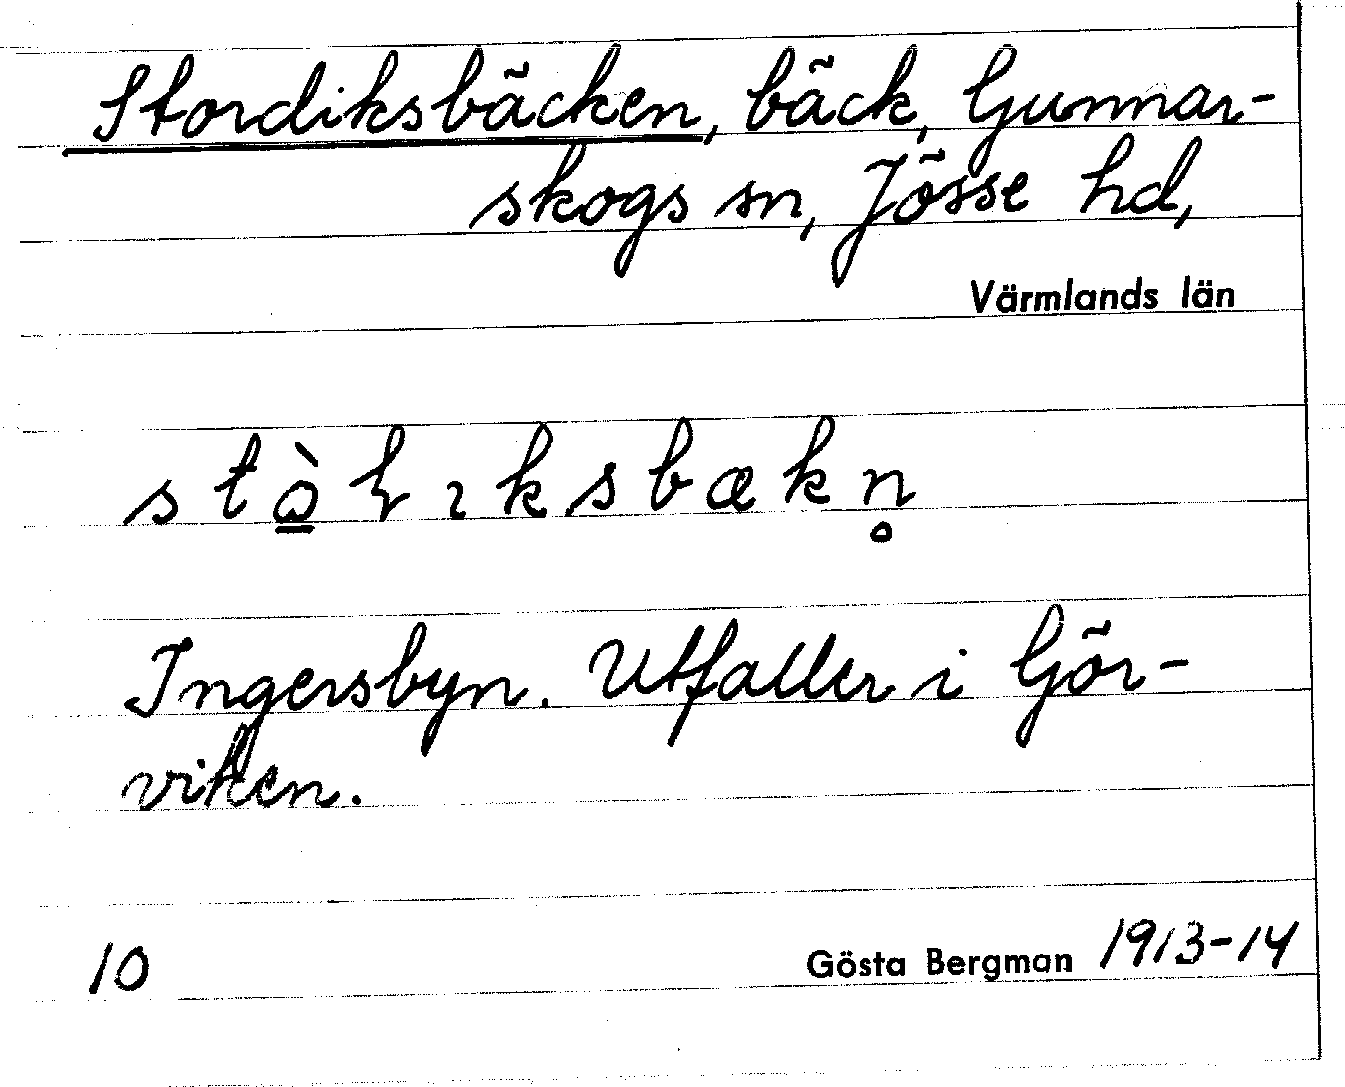 Stordiksbäcken, bäck, Gunnar-
skogs sn, Jösse hd,
Värmlands län
Ingersbyn. Utfaller i Gör-
viken.
10
Gösta Bergman 1913-14